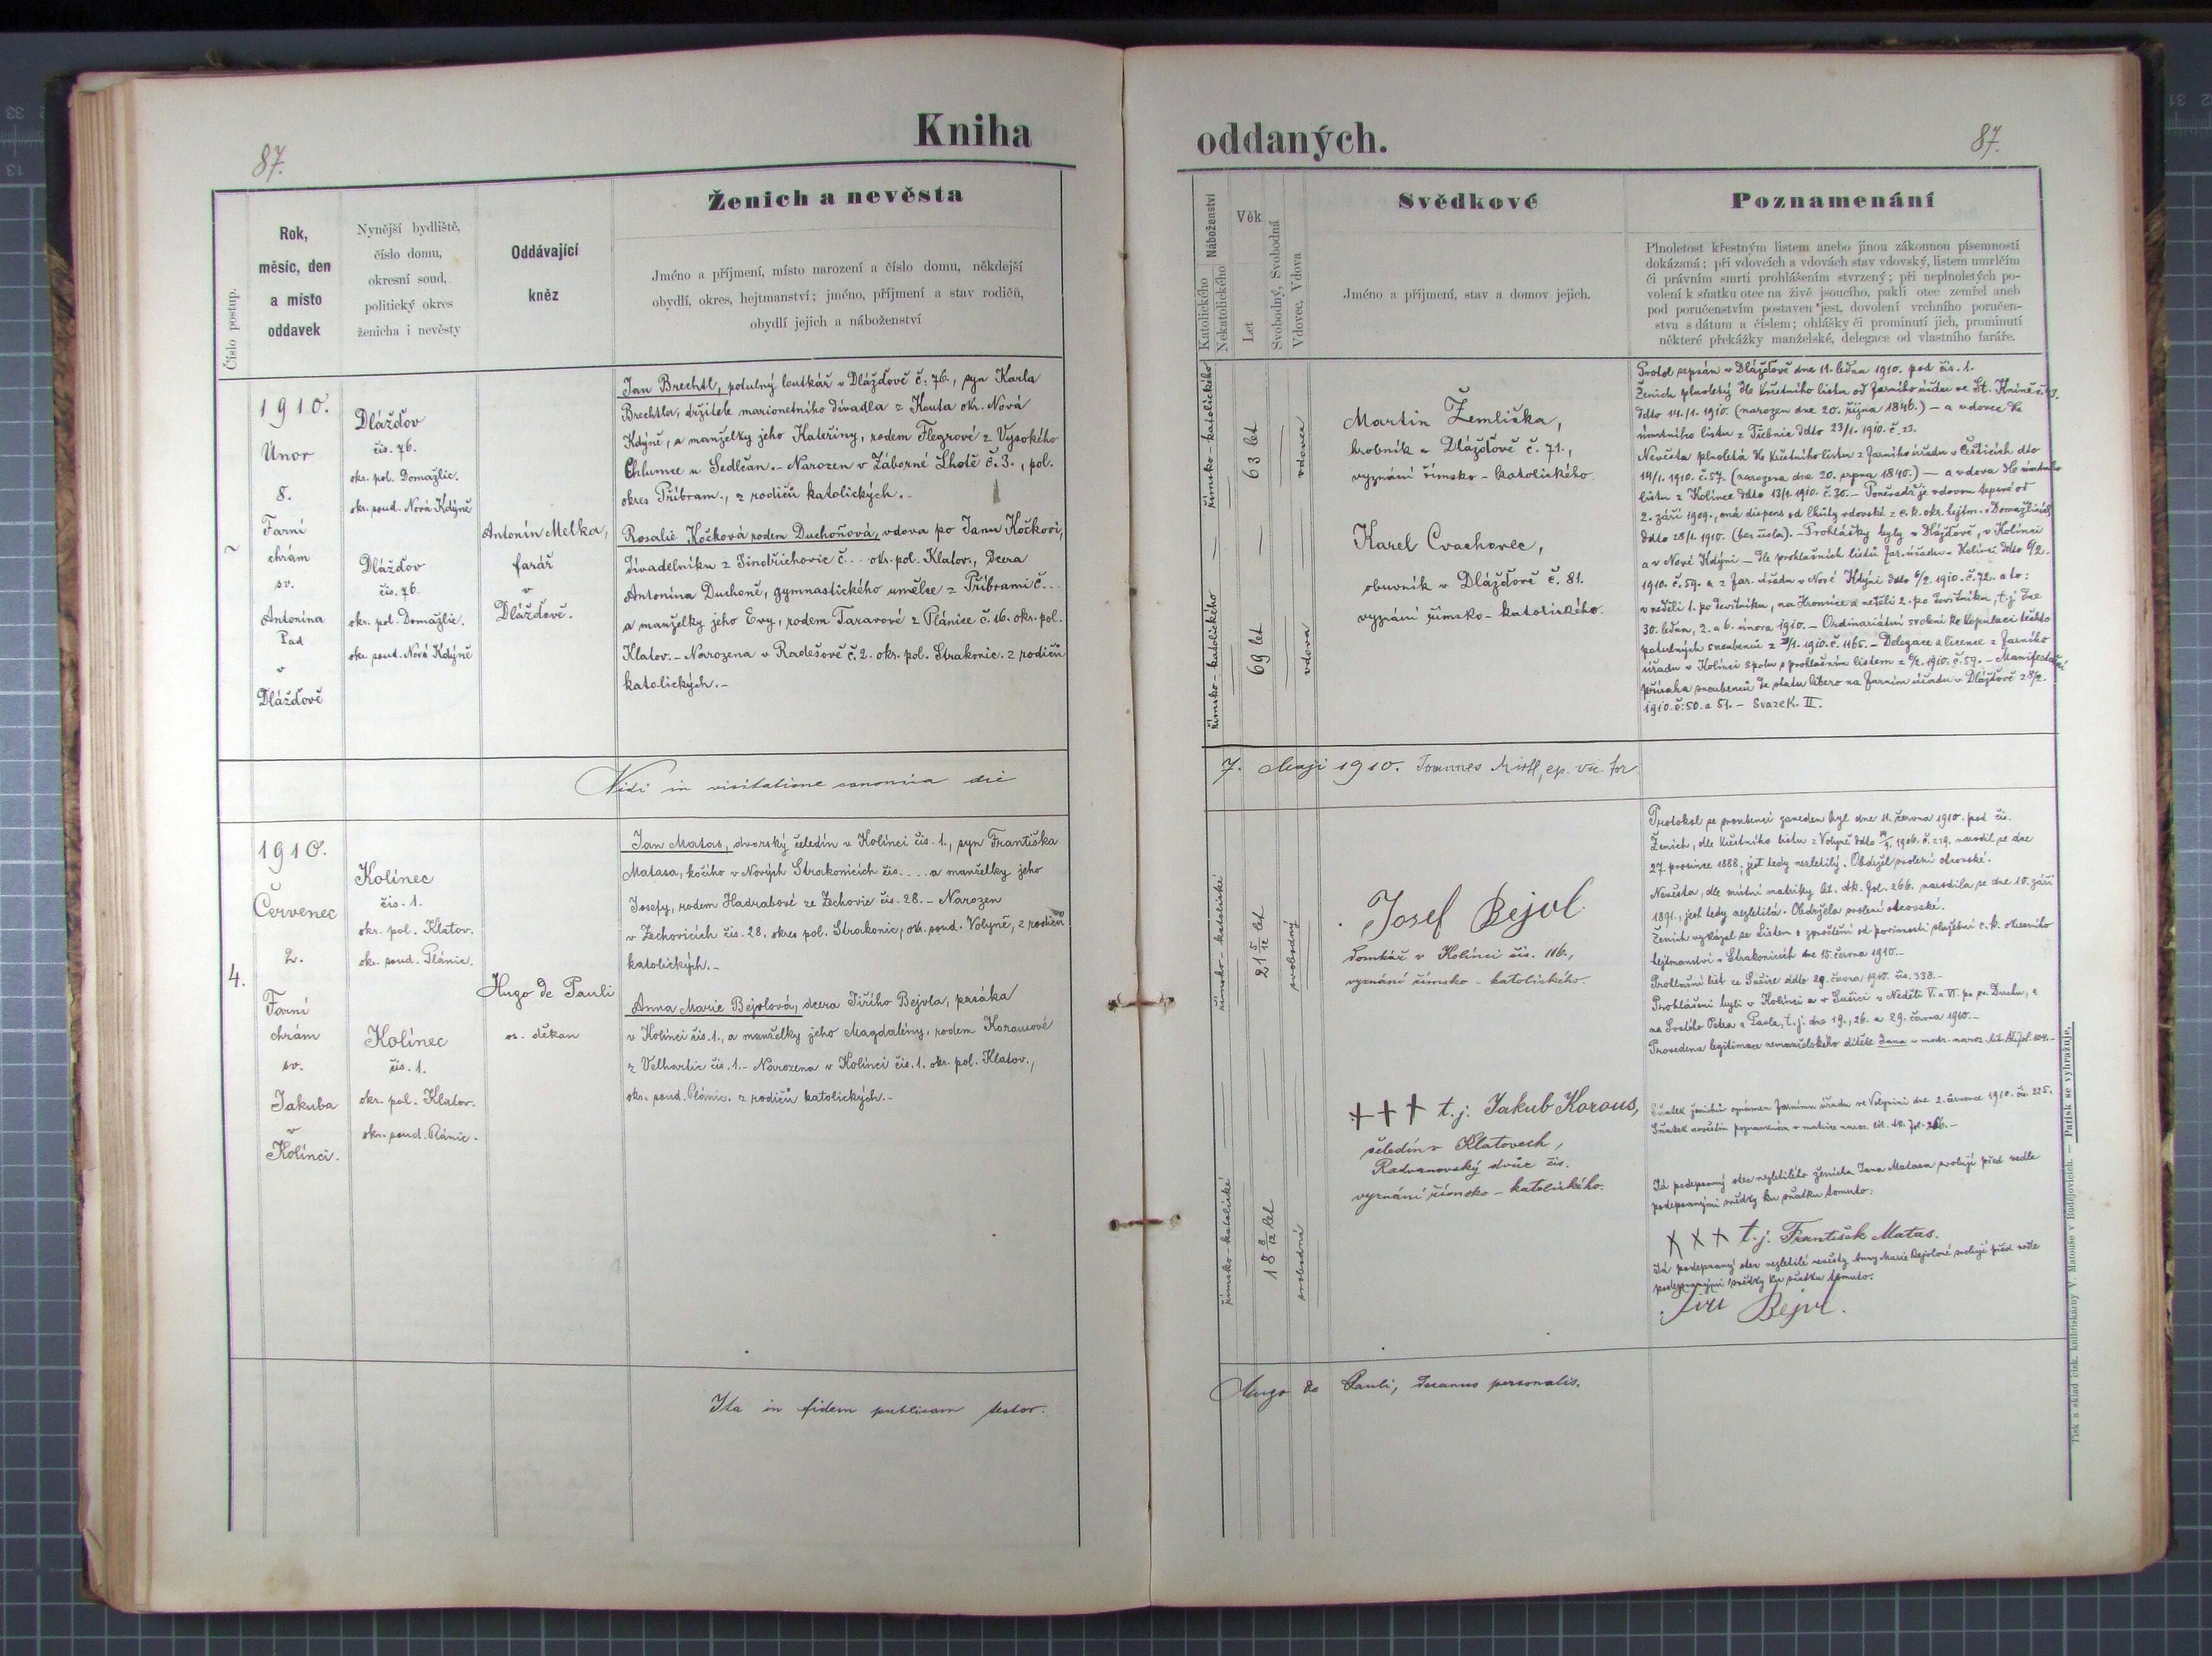 Kniha
oddaných.
87.
87.
Číslo postup.
Rok,
měsíc, den
a místo
oddavek
Nynější bydliště,
číslo domu,
okresní soud,
politický okres
ženicha i nevěsty
Oddávající
kněz
Ženich a nevěsta
Jméno a příjmení, místo narození a číslo domu, někdejší
obydlí, okres, hejtmanství; jméno, příjmení a stav rodičů,
obydlí jejich a náboženství
1910.
Únor
8.
Farní
chrám
sv.
Antonína
Pad
v
Dlážďově
Dlážďov
čís. 76.
okr. pol. Domažlic.
okr. soud. Nová Kdýně
Dlážďov
čís. 76.
okr. pol. Domažlic.
okr. soud. Nová Kdýně
Antonín Melka,
farář
v
Dlážďově.
Jan Brechtl, potulný loutkář v Dlážďově č. 76., syn Karla
Brechtla, držitele marionetního divadla z Kouta okr. Nová
Kdýně, a manželky jeho Kateřiny, rodem Flegrové z Vysokého
Chlumce u Sedlčan. – Narozen v Záborné Lhotě č. 3., pol.
okres Příbram., z rodičů katolických. –
Rosalie Kočková rodem Duchoňová, vdova po Janu Kočkovi,
divadelníku z Jindřichovic č... okr. pol. Klatov., dcera
Antonína Duchoně, gymnastického umělce z Příbrami č...
a manželky jeho Evy, rodem Taravové z Plánice č. 16. okr. pol.
Klatov. – Narozena v Radešově č. 2. okr. pol. Strakonic. z rodičů
katolických. –
Vidi in visitatione canonica die
4.
1910.
Červenec
2.
Farní
chrám
sv.
Jakuba
v
Kolínci.
Kolínec
čís. 1.
okr. pol. Klatov.
okr. soud. Plánic.
Kolínec
čís. 1.
okr. pol. Klatov.
okr. soud. Plánic.
Hugo de Pauli
os. děkan
Jan Matas, dvorský čeledín v Kolínci čís. 1., syn Františka
Matasa, kočího v Nových Strakonicích čís.... a manželky jeho
Josefy, rodem Hadrabové ze Zechovic čís. 28. – Narozen
v Zechovicích čís. 28. okres pol. Strakonic, okr. soud. Volyně, z rodičů
katolických. –
Anna Marie Bejvlová, dcera Jiřího Bejvla, pasáka
v Kolínci čís. 1., a manželky jeho Magdalény, rodem Korousové
z Velhartic čís. 1. – Narozena v Kolínci čís. 1. okr. pol. Klatov.,
okr. soud. Plánic. z rodičů katolických. –
Ita in fidem publicam testor.
Náboženství
Katolického
Nekatolického
Věk
Let
Svobodný, Svobodná
Vdovec, Vdova
Svědkové
Jméno a příjmení, stav a domov jejich.
Poznamenání
Plnoletost křestným listem anebo jinou zákonnou písemností
dokázaná; při vdovcích a vdovách stav vdovský, listem úmrlčím
či právním smrti prohlášením stvrzený; při neplnoletých po-
volení k sňatku otce na živě jsoucího, pakli otec zemřel aneb
pod poručenstvím postaven jest, dovolení vrchního poručen-
stva s dátum a číslem; ohlášky či prominutí jich, prominutí
některé překážky manželské, delegace od vlastního faráře.
římsko-katolického
63 let
vdovec
římsko-katolického
69 let
vdova
Martin Žemlička,
hrobník v Dlážďově č. 71.,
vyznání římsko-katolického.
Karel Cvachovec,
obuvník v Dlážďově č. 81.
vyznání římsko-katolického.
Protok sepsán v Dlážďově dne 11. ledna 1910. pod čís. 1.
Ženich plnoletý dle křestního listu od farního úřadu ve St. Kníně
ddto 14./1. 1910. (narozen dne 20. října 1846.) – a vdovec dle
úmrtního listu z Třebnic ddto 23/1. 1910. č. 23.
Nevěsta plnoletá dle křestního listu z farního úřadu v Češticích dto
14/1. 1910. č. 57. (narozena dne 20. srpna 1840.) – a vdova dle úmrtního
listu z Kolínce ddto 13/1. 1910. č. 30. – Poněvadž je vdovou teprve od
2. září 1909., má dispens od lhůty vdovské z c. k. okr. hejtm. v Domažlicích
ddto 28/1. 1910. (bez čísla). – Prohlášky byly v Dlážďově, v Kolínci
a v Nové Kdýni – dle prohlašních listů far. úřadu v Kolínci ddto 6/2.
1910. č. 59. a z far. úřadu v Nové Kdýni ddto 6/2. 1910. č. 72. a to:
v neděli 1. po Devítníku, na Hromnice a neděli 2. po Devítníku, t. j. dne
30. ledna, 2. a 6. února 1910. – Ordinariátní svolení ke kopulaci těchto
potulných snoubenců z 1910. č. 1165. – Delegace a licence z farního
úřadu v Kolínci spolu s prohlašním listem z 6/2. 1910. č. 59. – Manifestační
přísaha snoubenců de statu libero na farním úřadu v Dlážďově z 8/2.
1910. č. 50. a 51. – Svazek. II.
7. Maji 1910. Joannes ep. vic. for.
římsko-katolické
21 5/12 let
svobodný
římsko-katolické
18 8/12 let
svobodná
Josef Bejvl
domkář v Kolínci čís. 116.,
vyznání římsko-katolického.
+++ t. j. Jakub Korous,
čeledín v Klatovech,
Radvanovský dvůr čís.
vyznání římsko-katolického.
Protokol se snoubenci zaveden byl dne 11. června 1910. pod čís.
Ženich, dle křestního listu z Volyně ddto 1906. č. 219. narodil se dne
27. prosince 1888, jest tedy nezletilý. Obdržel svolení otcovské.
Nevěsta, dle místní matriky lit. dk. fol. 266. narodila se dne 10. září
1891., jest tedy nezletilá. Obdržela svolení otcovské.
Ženich vykázal se listem o zproštění od povinnosti služební c. k. okresního
hejtmanství v Strakonicích dne 15. června 1910. –
Prohlašní list ze Sušice ddto 29. června 1910. čís. 338. –
Prohlášeni byli v Kolínci a v Sušici v Neděli V. a VI. po sv. Duchu, a
na Svatého Petra a Pavla, t. j. dne 19., 26. a 29. června 1910. –
Provedena legitimace nemanželského dítěte Jana v matr. naroz. lit. fol. 104. –
Sňatek ženichův oznámen farnímu úřadu ve Volyni dne 2. července 1910. čís. 225.
Sňatek nevěstin poznamenán v matrice naroz. lit. fol. 266. –
Já podepsaný otec nezletilého ženicha Jana Matasa svoluji před vedle
podepsanými svědky ku sňatku tomuto:
××+ t. j. František Matas.
Já podepsaný otec nezletilé nevěsty Anny Marie Bejvlové svoluji před vedle
podepsanými svědky ku sňatku tomuto.
Jiří Bejvl.
Hugo de Pauli, decanus personalis.
Tisk a sklad česk. knihtiskárny V. Matouše v Budějovicích. — Patisk se vyhražuje.